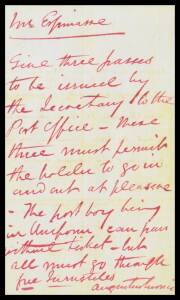 Mr Espinasse
Give three passes
to be issued by
the Secretary to the
Post Office - These
three must permit
the holder to go in
and out at pleasure
- The post boy being
in Uniform can pass
without ticket - but
all must go through
free Turnstiles